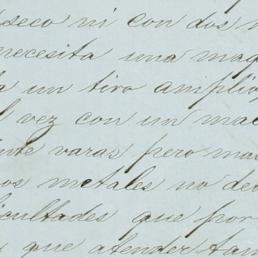 seco ni con dos
necesita una maq
a un tiro amplio
l vez con un mac
inte varas pero mas
os metales no deb
icultades que por
que atender tam